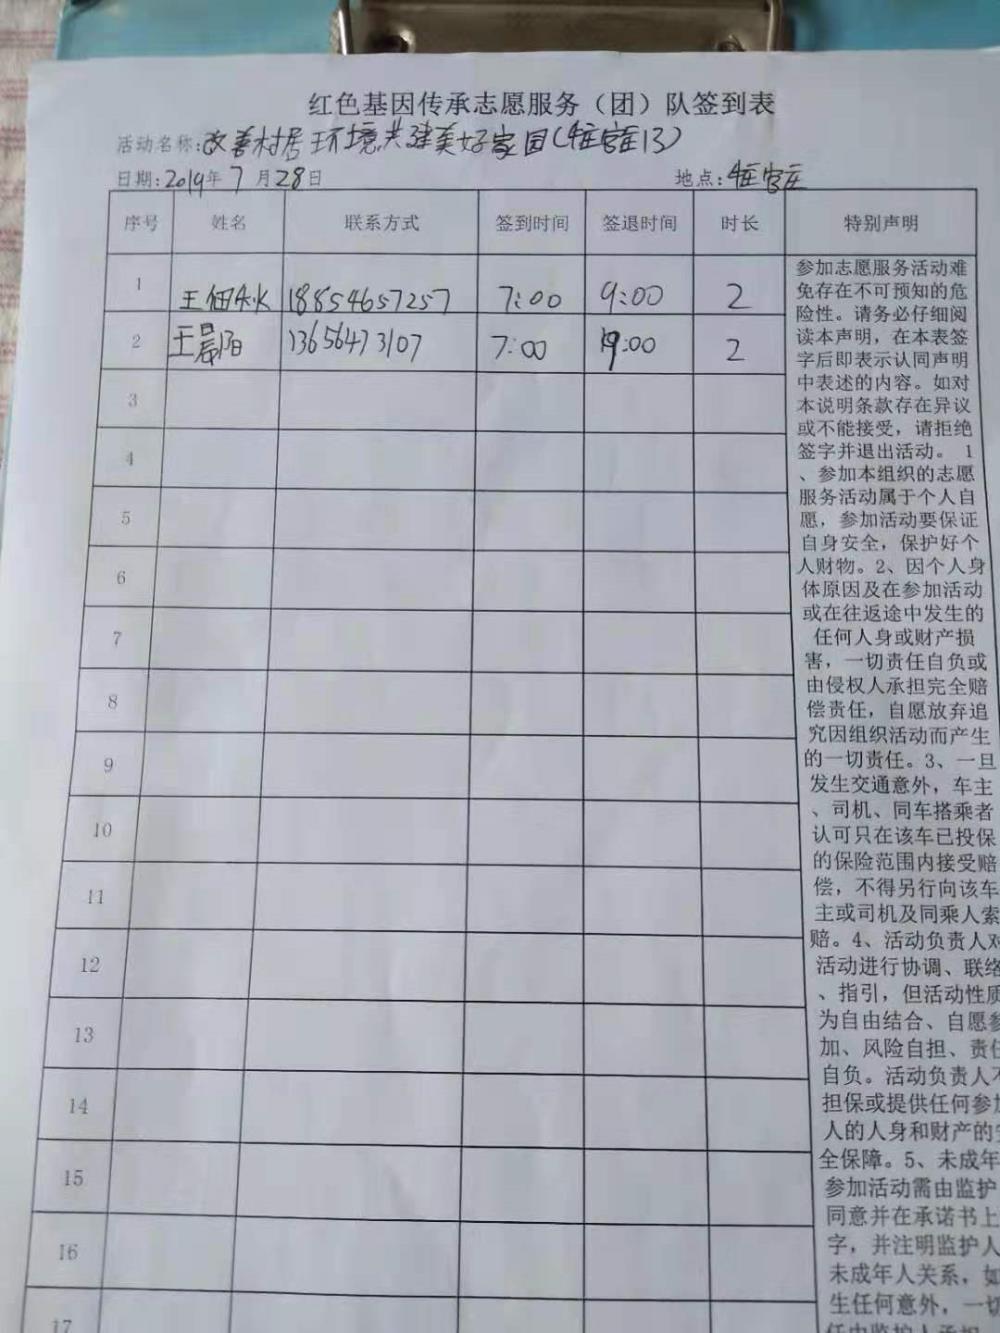 红色基因传承志愿服务（团）队签到表
活动名称:改善村居环境共建美好家园(崔官庄13)
日期:2019年7月28日
地点:崔官庄
序号 姓名 联系方式 签到时间 签退时间 时长 特别声明
1 王 18854657257 7:00 9:00 2
2 王晨阳 13656473107 7:00 9:00 2
3
4
5
6
7
8
9
10
11
12
13
14
15
16
17
参加志愿服务活动难
免存在不可预知的危
险性。请务必仔细阅
读本声明，在本表签
字后即表示认同声明
中表述的内容。如对
本说明条款存在异议
或不能接受，请拒绝
签字并退出活动。 1
、参加本组织的志愿
服务活动属于个人自
愿，参加活动要保证
自身安全，保护好个
人财物。2、因个人身
体原因及在参加活动
或在往返途中发生的
任何人身或财产损
害，一切责任自负或
由侵权人承担完全赔
偿责任，自愿放弃追
究因组织活动而产生
的一切责任。3、一旦
发生交通意外，车主
、司机、同车搭乘者
认可只在该车已投保
的保险范围内接受赔
偿，不得另行向该车
主或司机及同乘人索
赔。4、活动负责人对
活动进行协调、联络
、指引，但活动性质
为自由结合、自愿参
加、风险自担、责任
自负。活动负责人不
担保或提供任何参加
人的人身和财产的安
全保障。5、未成年
参加活动需由监护
同意并在承诺书上
字，并注明监护人
未成年人关系，如
生任何意外，一切
任由监护人承担